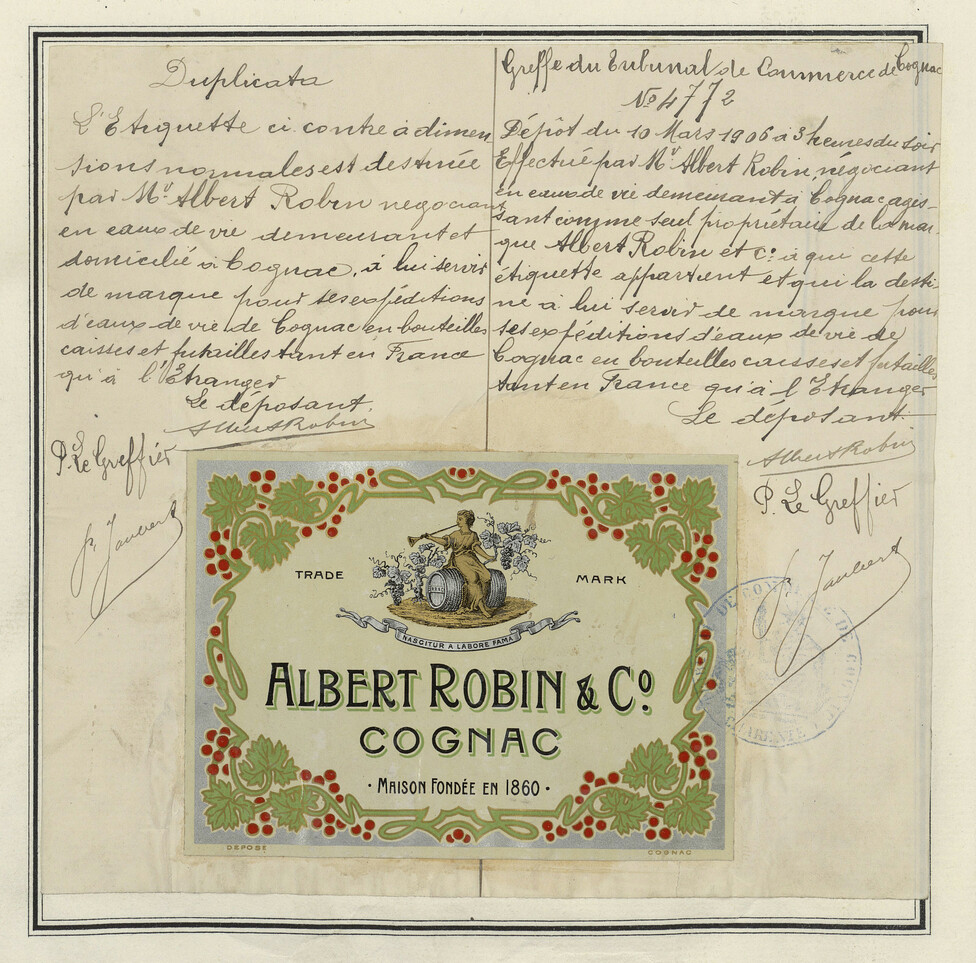 Duplicata
L'Etiquette ci contre à dimen-
sions normales est destinée
par Mr Albert Robin negociant
en eaux de vie demeurant et
domicilié à Cognac, à lui servir
de marque pour ses expéditions
d'eaux de vie de Cognac en bouteilles
caisses et futailles tant en France
qu'à l'Etranger
Le déposant.
Albert Robin
P. Le Greffier
Greffe du Tribunal de Commerce de Cognac
No 4772
Dépôt du 10 Mars 1906 à 3 heures du soir
Effectué par Mr Albert Robin, négociant
en eaux de vie demeurant à Cognac agis-
sant comme seul propriétaire de la mar-
que Albert Robin et Co à qui cette
étiquette appartient et qui la desti-
ne à lui servir de marque pour
ses expéditions d'eaux de vie de
Cognac en bouteilles caisses et futailles
tant en France qu'à l'Etranger
Le déposant
Albert Robin
P. Le Greffier
TRADE MARK
NASCITUR A LABORE FAMA
ALBERT ROBIN & Co
COGNAC
· MAISON FONDÉE EN 1860 ·
DEPOSÉ
COGNAC